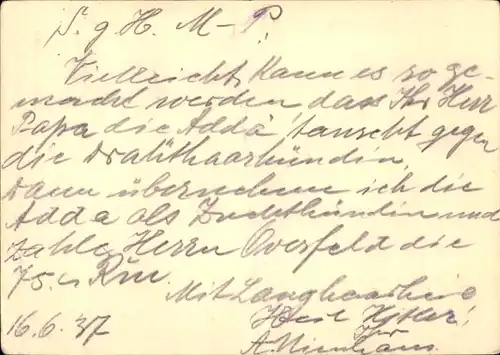 S. g. H. M-P.
Vielleicht kann es so ge-
macht werden dass Ihr Herr
Papa die Adda tauscht gegen
die Drahthaarhündin.
Dann übernehme ich die
Adda als Zuchthündin und
zahle Herrn Overfeld die
75.- Rm
Mit Langhaarheil
Heil Hitler!
16.6.37 Ihr
A. Nienhaus.